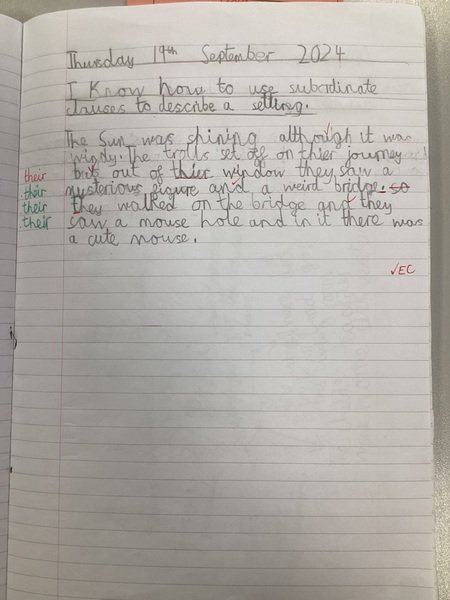 Thursday 19th September 2024
I Know how to use subordinate
clauses to describe a setting.
The Sun was shining although it was
windy. The trolls set off on thier journey
their but out of thier window they saw a
their mysterious figure and a weird bridge. so
their They walked on the bridge and they
their saw a mouse hole and in it there was
a cute mouse.
✓EC